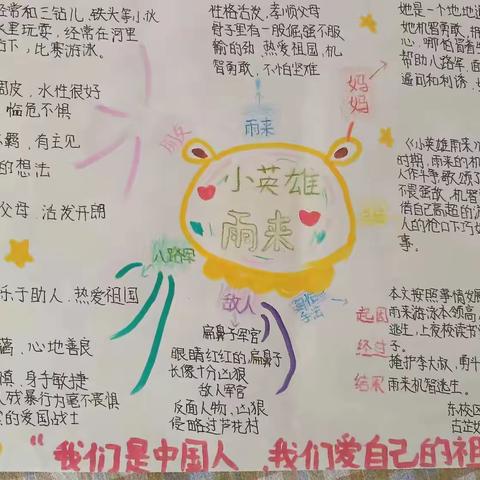 经常和三钻儿，铁头等小伙
水里玩耍，经常在河里
比赛游泳。
皮，水性很好
临危不惧
，有主见
的想法
父母，活发开朗
乐于助人，热爱祖国
，心地善良
，身手敏捷
人残暴行为毫不畏惧
的爱国战士
性格活发，孝顺父母
骨子里有一股倔强不服
输的劲，热爱祖国，机
智勇敢，不怕坚难
雨来
妈妈
小英雄
雨来
八路军
敌人
扁鼻子军官
眼睛红红的，扁鼻子
长像十分凶狠
敌人军官
反面人物，凶狠
侵略过芦花村
她是一个地地道
她机智勇敢，
心，哪怕冒着生
帮助八路军，面
逼问和利诱，
《小英雄雨来》
时期，雨来的机
人作斗争歌颂了
不畏强敌，机智
借自己高超的游
人的枪口下巧妙
事。
本文按照事情发展
起因 雨来游泳本领高，
逃生，上夜校读书
经过 子。
掩护李大叔，勇斗
结果 雨来机智逃生。
东校区
“我们是中国人，我们爱自己的祖